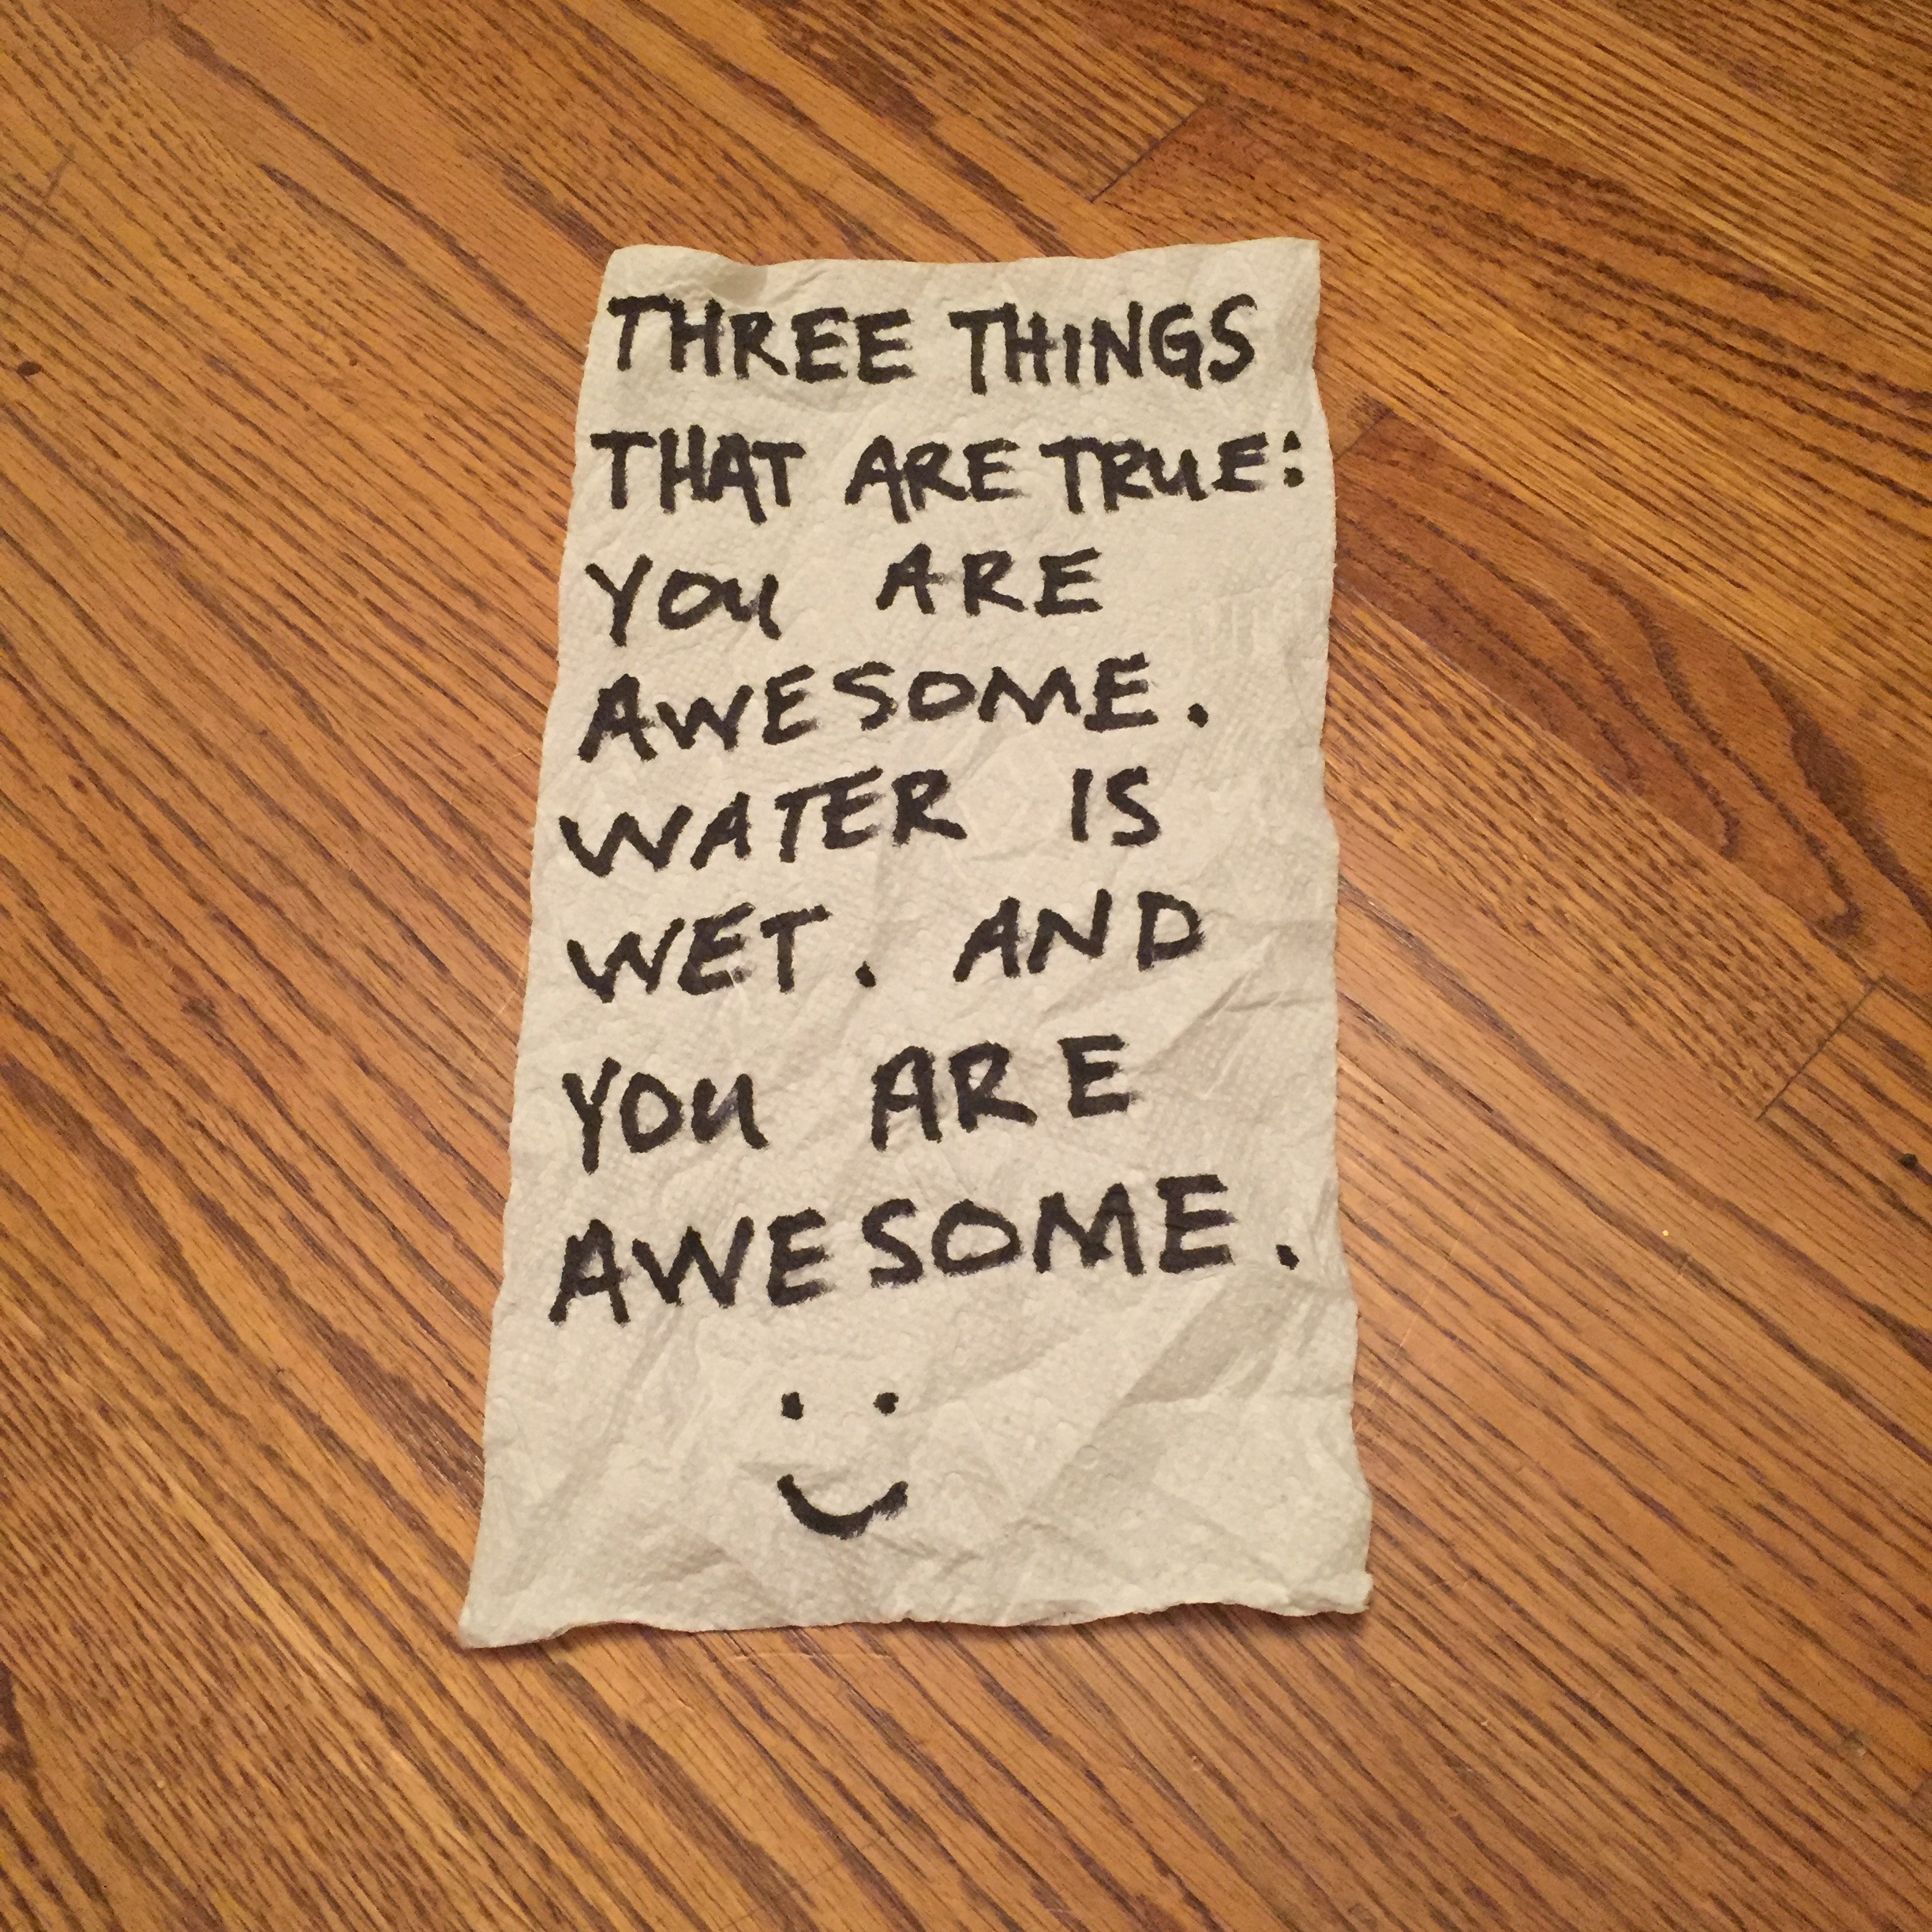 THREE THINGS
THAT ARE TRUE:
YOU ARE
AWESOME.
WATER IS
WET. AND
YOU ARE
AWESOME.